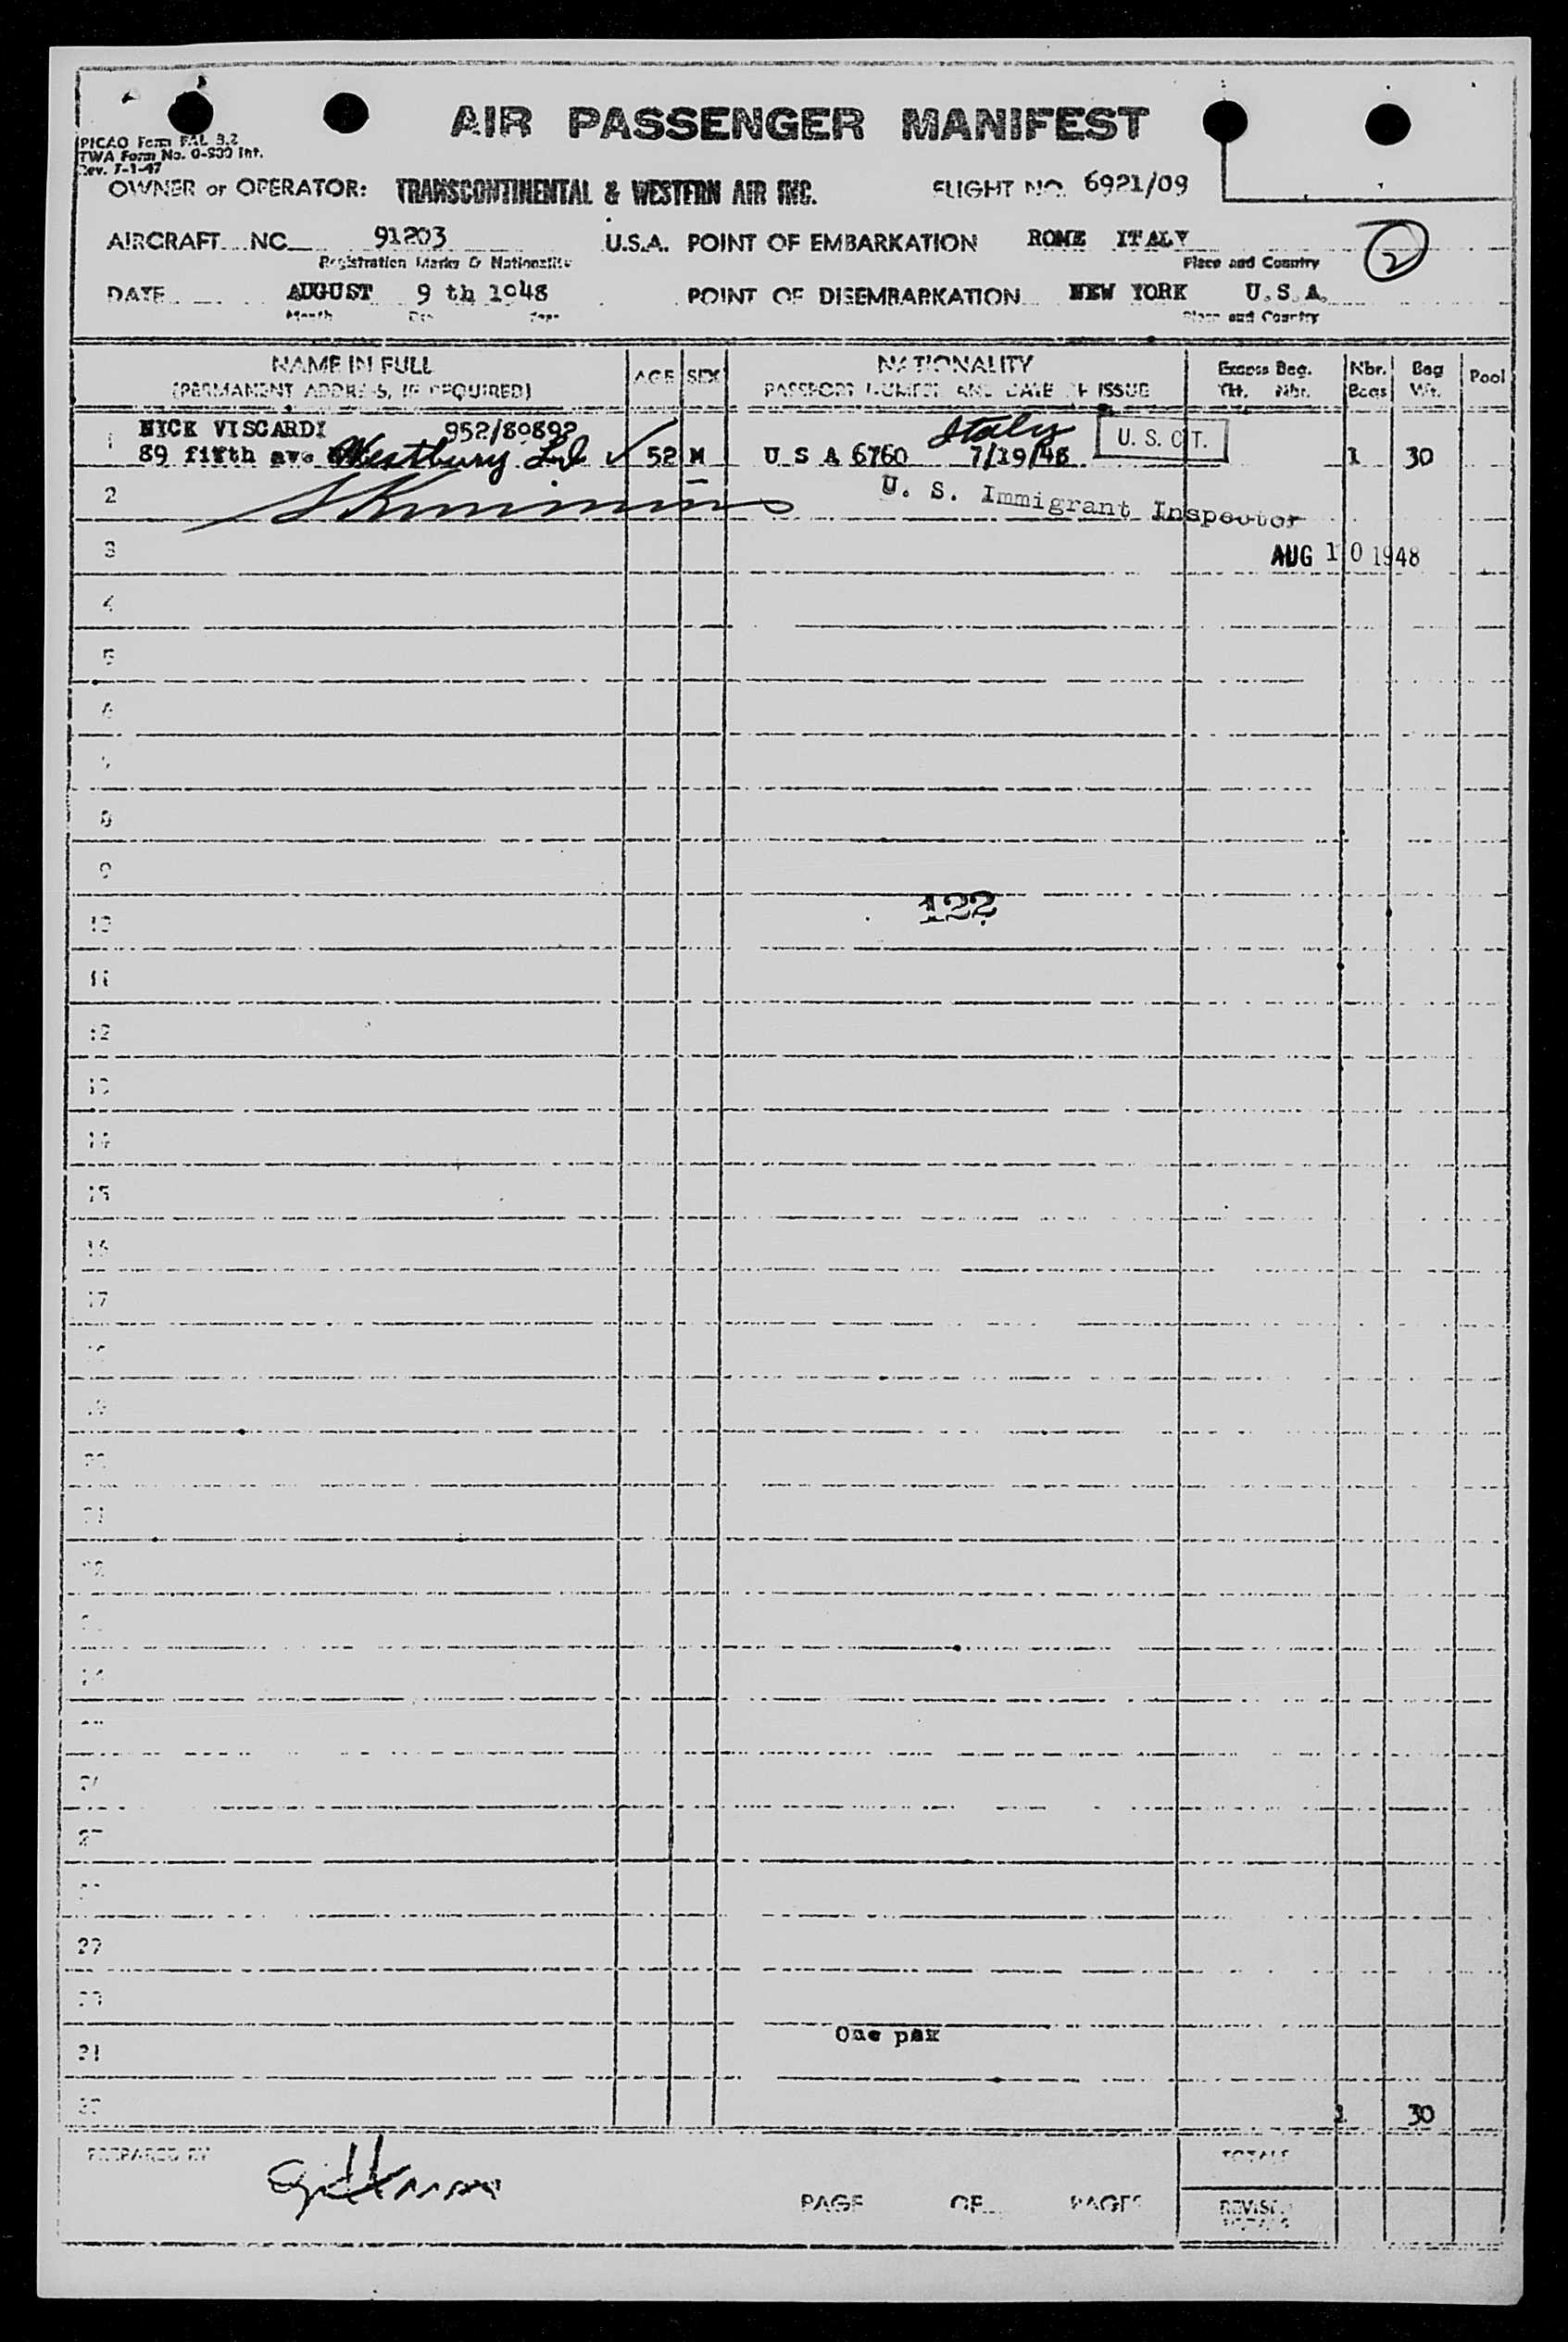 AIR PASSENGER MANIFEST
PICAO Form FAL 3.2
TWA Form No. O-900 Int.
Rev. 7-1-47
OWNER or OPERATOR: TRANSCONTINENTAL & WESTERN AIR INC. FLIGHT NO. 6921/09
AIRCRAFT NC 91203 U.S.A. POINT OF EMBARKATION ROME ITALY
Registration Marks & Nationality Place and Country
2
DATE AUGUST 9 th 1948 POINT OF DISEMBARKATION NEW YORK U.S.A.
Month Day Year Place and Country
NAME IN FULL AGE SEX NATIONALITY Excess Bag. Nbr. Bag Pool
(PERMANENT ADDRESS, IF REQUIRED) PASSPORT NUMBER AND DATE OF ISSUE Tkt. Nbr. Bags Wt.
1 NICK VISCARDI 952/80892 Italy U. S. CIT.
89 fifth ave Westbury 52 M U S A 6760 7/19/48 1 30
2 U. S. Immigrant Inspector
3 AUG 10 1948
4
5
6
7
8
9
10 122
11
12
13
14
15
16
17
19
20
21
22
24
27
29
One pax
31
1 30
PREPARED BY TOTALS
PAGE OF PAGES REVISED